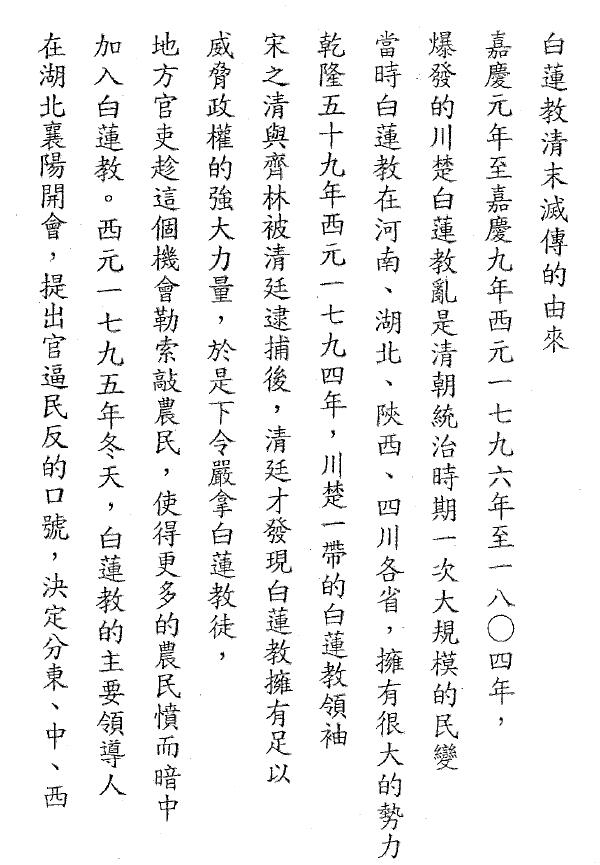 白蓮教清末滅傳的由來
嘉慶元年至嘉慶九年西元一七九六年至一八〇四年，
爆發的川楚白蓮教亂是清朝統治時期一次大規模的民變
當時白蓮教在河南、湖北、陝西、四川各省，擁有很大的勢力
乾隆五十九年西元一七九四年，川楚一帶的白蓮教領袖
宋之清與齊林被清廷逮捕後，清廷才發現白蓮教擁有足以
威脅政權的強大力量，於是下令嚴拿白蓮教徒，
地方官吏趁這個機會勒索敲農民，使得更多的農民憤而暗中
加入白蓮教。西元一七九五年冬天，白蓮教的主要領導人
在湖北襄陽開會，提出官逼民反的口號，決定分東、中、西